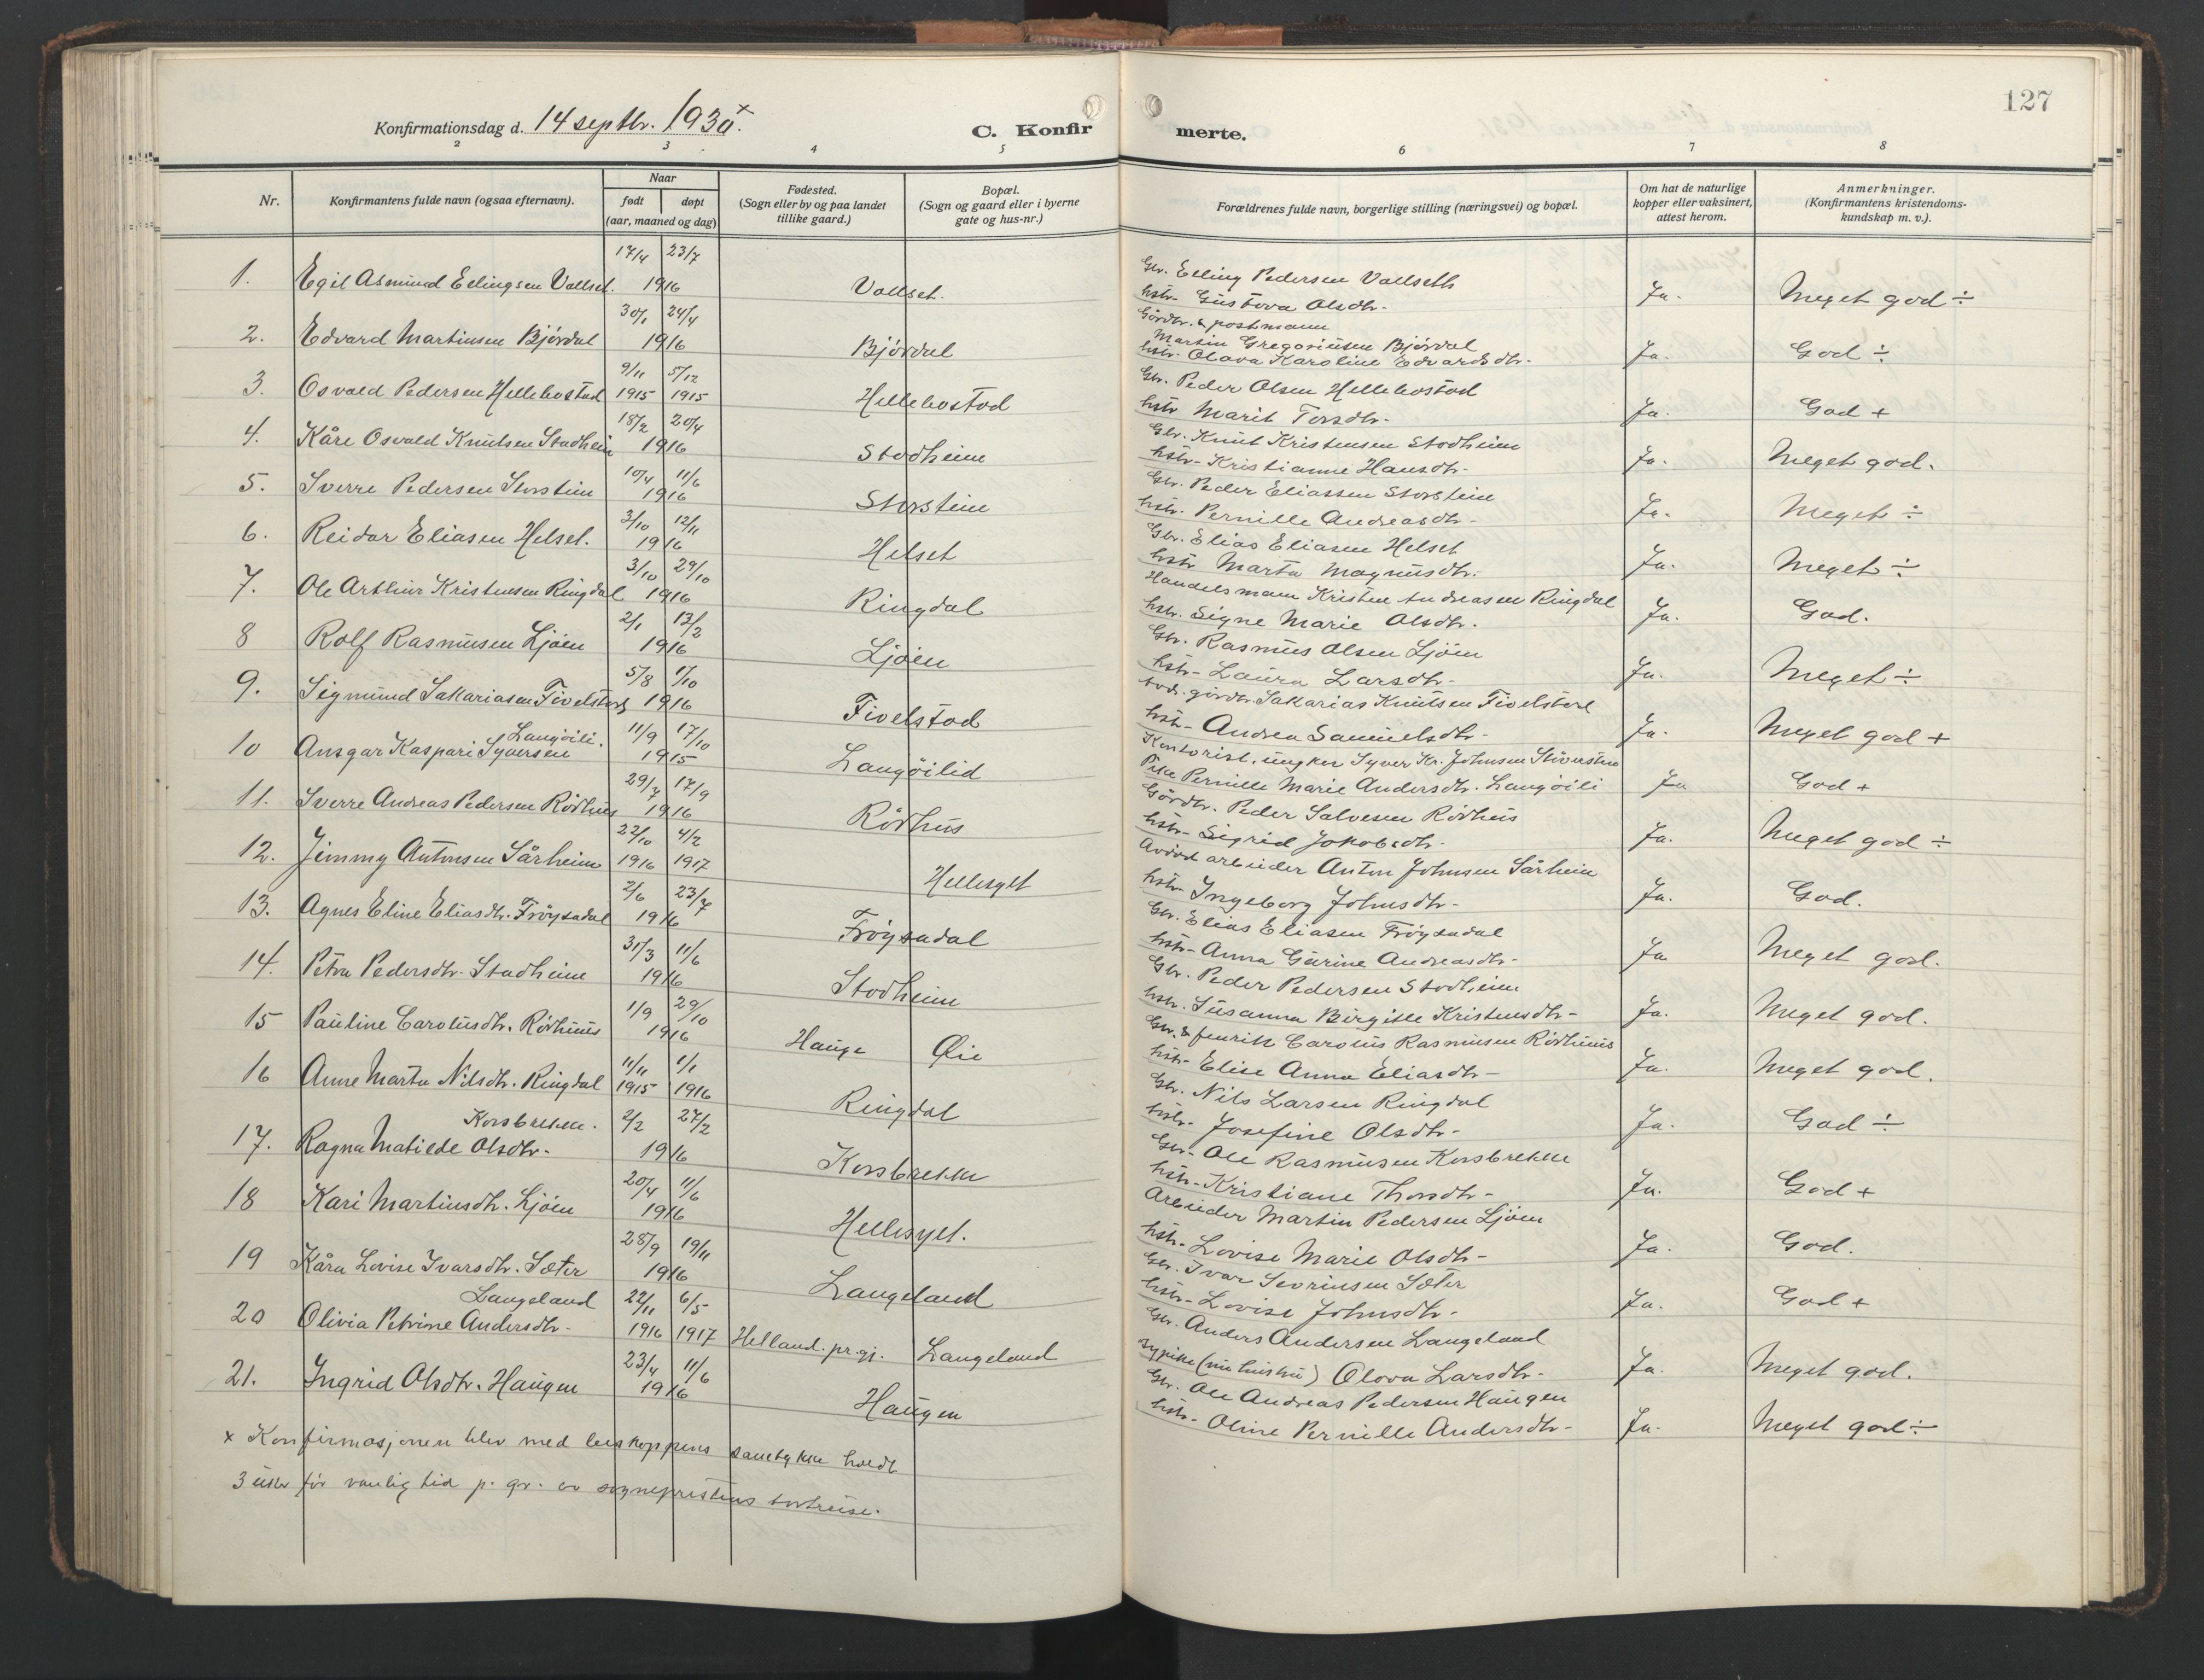 127
Konfirmationsdag d. 14 septbr. 1930.x
C. Konfirmerte.
2 3 4 5 6 7 8
Nr.
Konfirmantens fulde navn (ogsaa efternavn).
Naar
født døpt
(aar, maaned og dag)
Fødested.
(Sogn eller by og paa landet
tillike gaard.)
Bopæl.
(Sogn og gaard eller i byerne
gate og hus-nr.)
Forældrenes fulde navn, borgerlige stilling (næringsvei) og bopæl.
Om hat de naturlige
kopper eller vaksinert,
attest herom.
Anmerkninger.
(Konfirmantens kristendoms-
kundskap m. v.).
17/4 23/7
1. Egil Asmund Erlingsen Vollset. 1916 Vollset.
Gbr. Erling Pedersen Vollseth
hstr. Gustava Olsdtr. Ja. Meget god ÷
30/1 24/4
2. Edvard Martinsen Bjørdal 1916 Bjørdal
Gårdbr. & postmann
Martin Gregoriusen Bjørdal
hstr. Olava Karoline Edvardsdtr. Ja. God ÷
9/11 5/12
3. Osvald Pedersen Hellebostad 1915 1915 Hellebostad
Gbr. Peder Olsen Hellebostad
hstr Marit Torsdtr. Ja. God +
18/2 20/4
4. Kåre Osvald Knutsen Stadheim 1916 Stadheim
Gbr. Knut Kristensen Stadheim
hstr. Kristianne Hansdtr. Ja. Meget god.
10/4 11/6
5. Sverre Pedersen Storstein 1916 Storstein
Gbr. Peder Eliassen Storstein
hstr. Pernille Andreasdtr. Ja. Meget ÷
3/10 12/11
6. Reidar Eliasen Helset. 1916 Helset
Gbr. Elias Eliasen Helset
hstr Marta Magnusdtr. Ja. Meget ÷
3/10 29/10
7. Ole Arthur Kristensen Ringdal 1916 Ringdal
Handelsmann Kristen Andreasen Ringdal
hstr. Signe Marie Olsdtr. Ja. God.
2/1 13/2
8 Rolf Rasmusen Ljøen 1916 Ljøen
Gbr. Rasmus Olsen Ljøen
hstr. Laura Larsdtr. Ja. Meget ÷
5/8 1/10
9. Sigmund Sakariasen Fivelstad 1916 Fivelstad
gårdbr. Sakarias Knutsen Fivelstad
hstr. Andrea Samuelsdtr. Ja. Meget god +
Langøili. 11/9 17/10
10 Ansgar Kaspari Syversen 1915 Langøilid
Kontorist, ungkar Syver Kr. Johnsen
Pike Pernille Marie Andersdtr. Langøili Ja God +
29/7 17/9
11. Sverre Andreas Pedersen Rødhus 1916 Rødhus
Gårdbr. Peder Salvesen Rødhus
hstr. Sigrid Jakobsdtr. Ja. Meget god ÷
22/10 4/2
12. Jimmy Antonsen Sårheim 1916 1917 Hellesylt
Avdød arbeider Anton Johnsen Sårheim
hstr. Ingeborg Johnsdtr. Ja. God.
2/6 23/7
13. Agnes Eline Eliasdtr. Frøysadal 1916 Frøysadal
Gbr. Elias Eliasen Frøysadal
hstr. Anna Gurine Andreasdtr. Ja Meget god.
31/3 11/6
14. Petra Pedersdtr. Stadheim 1916 Stadheim
Gbr. Peder Pedersen Stadheim
hstr. Susanna Birgitte Kristensdtr. Ja. Meget god.
1/9 29/10
15 Pauline Carolusdtr. Rødhus 1916 Hauge Øie
Gbr. & fenrik Carolus Rasmusen Rødhus
hstr. Elise Anna Eliasdtr. Ja. Meget god.
11/11 1/1
16 Anne Marta Nilsdtr. Ringdal 1915 1916 Ringdal
Gbr. Nils Larsen Ringdal
hstr. Josefine Olsdtr. Ja. God ÷
Korsbrekke. 2/2 27/2
17. Ragna Matilde Olsdtr. 1916 Korsbrekke
Gbr. Ole Rasmusen Korsbrekke
hstr. Kristiane Thorsdtr. Ja. God +
20/4 11/6
18 Kari Martinsdtr. Ljøen 1916 Hellesylt.
Arbeider Martin Pedersen Ljøen
hstr. Lovise Marie Olsdtr. Ja. God.
28/9 19/11
19 Kåra Lovise Ivarsdtr. Sæter 1916 Langeland
Gbr. Ivar Sevrinsen Sæter
hstr. Lovise Johnsdtr. Ja. God +
Langeland 22/11 6/5
20 Olivia Petrine Andersdtr. 1916 1917 Helland. pr.gj. Langeland
Gbr. Anders Andersen Langeland
sypike (nu hustru) Olava Larsdtr. Ja. Meget god.
23/4 11/6
21. Ingrid Olsdtr. Haugen 1916 Haugen
Gbr. Ole Andreas Pedersen Haugen
hstr. Oline Pernille Andersdtr. Ja. Meget god ÷
x Konfirmasjonen blev med biskoppens samtykke holdt
3 uker før vanlig tid p. gr. av sogneprestens bortreise.